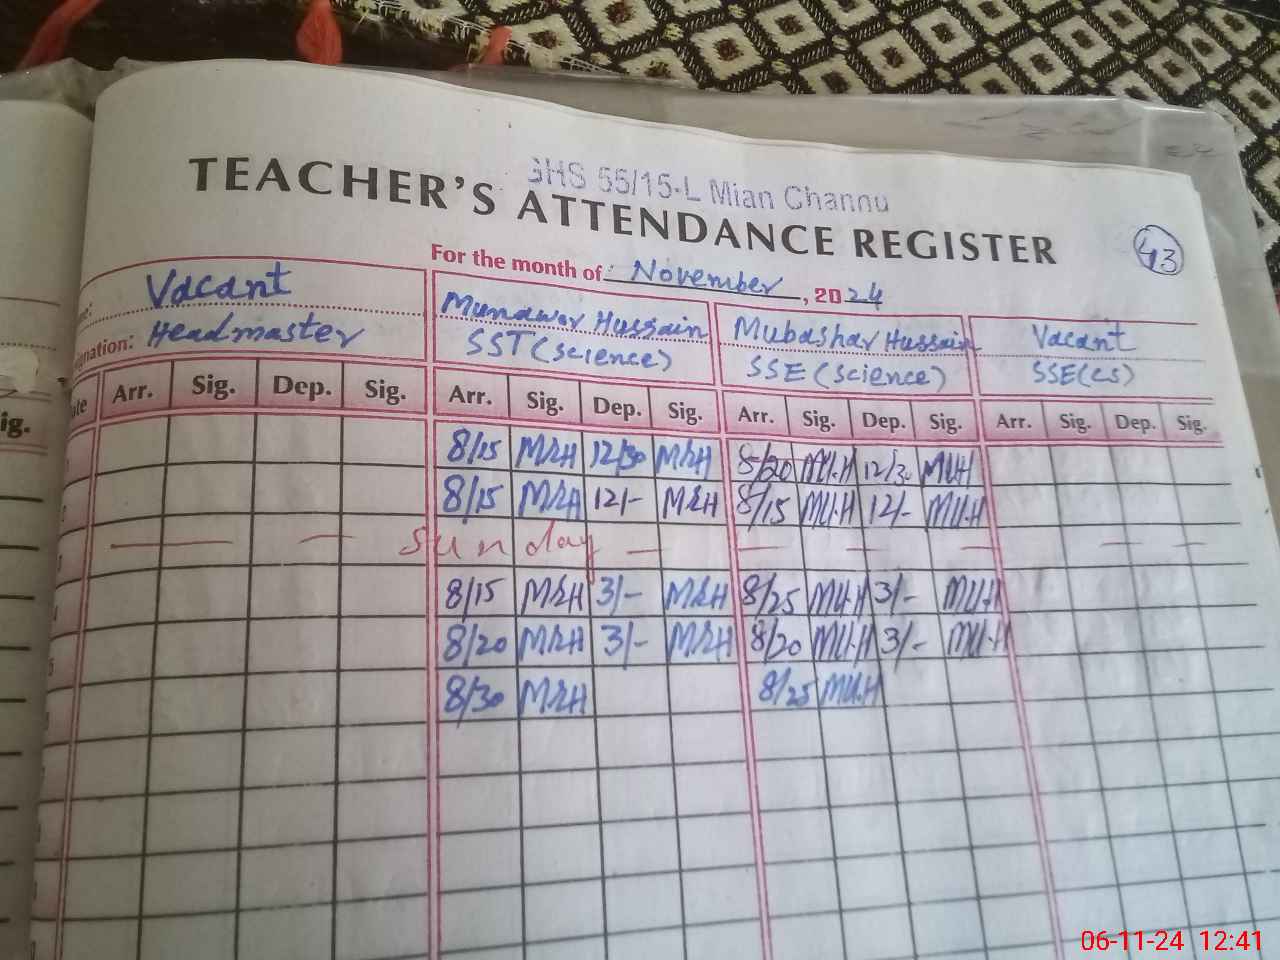 GHS 55/15-L Mian Channu
TEACHER'S ATTENDANCE REGISTER
43
For the month of: November, 2024
Vacant Munawar Hussain Mubashar Hussain Vacant
ignation: Headmaster SST (Science) SSE (Science) SSE (CS)
Arr. Sig. Dep. Sig. Arr. Sig. Dep. Sig. Arr. Sig. Dep. Sig. Arr. Sig. Dep. Sig.
ig.
8/15 MRH 12/30 MRH 8/20 MU.H 12/30 MU.H
8/15 MRH 12/- MRH 8/15 MU.H 12/- MU.H
Sunday
8/15 MRH 3/- MRH 8/25 MU.H 3/- MU.H
8/20 MRH 3/- MRH 8/20 MU.H 3/- MU.H
8/30 MRH 8/25 MU.H
06-11-24 12:41